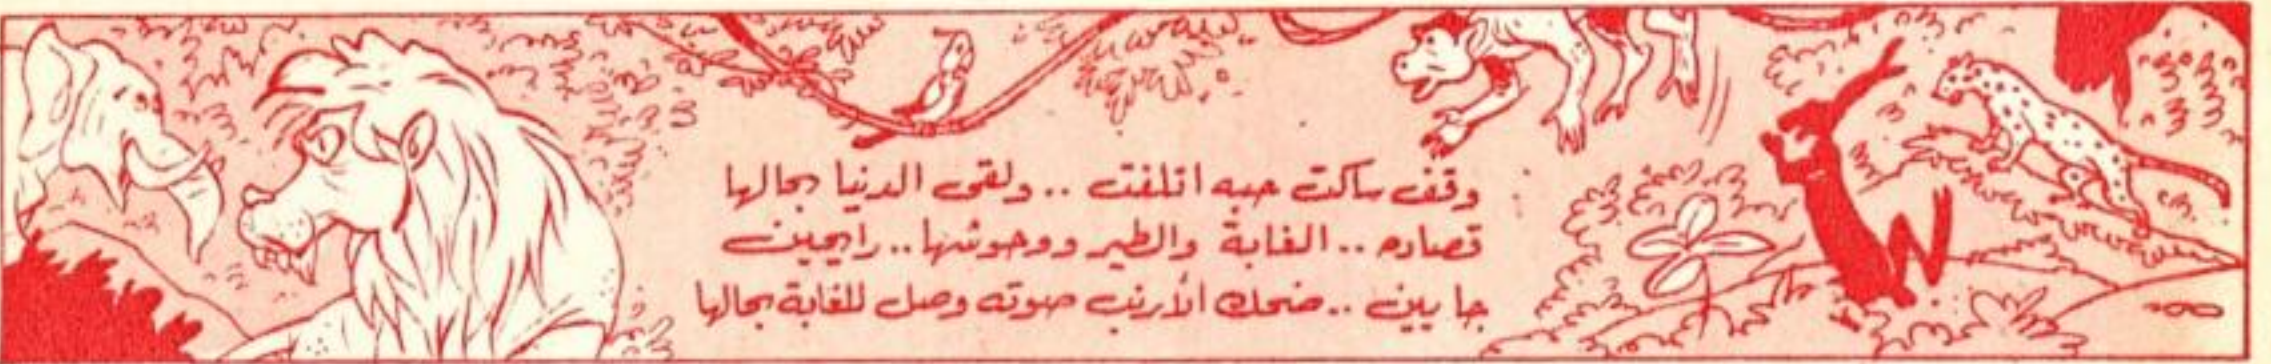 وقف ساكت حبه اتلفت .. ولقى الدنيا بحالها
قصاده .. الغابة والطير ووحوشها .. رايحين
جايين .. ضحك الأرنب صوته وصل للغابة بحالها